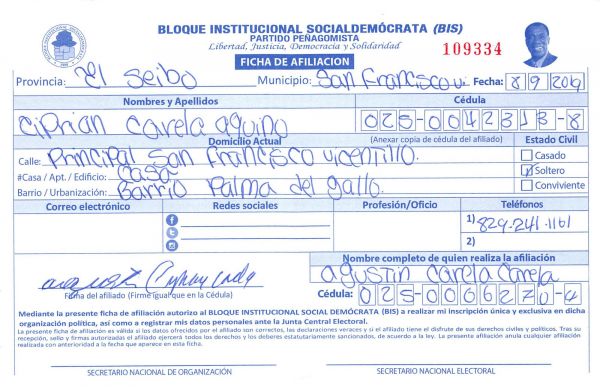 BLOQUE INSTITUCIONAL SOCIALDEMÓCRATA (BIS)
PARTIDO PEÑAGOMISTA
Libertad, Justicia, Democracia y Solidaridad
FICHA DE AFILIACION
109334
Provincia: El Seibo Municipio: San Francisco vi. Fecha: 8 9 2019
Nombres y Apellidos Cédula
Ciprian Carela aquino 025-0042313-8
Domicilio Actual (Anexar copia de cédula del afiliado) Estado Civil
Calle: Principal San Francisco vicentillo. Casado
#Casa / Apt. / Edificio: Casa Soltero
Barrio / Urbanización: Barrio Palma del gallo. Conviviente
Correo electrónico Redes sociales Profesión/Oficio Teléfonos
1) 829-241-1161
2)
Nombre completo de quien realiza la afiliación
agustin Carela Carela
Firma del afiliado (Firme igual que en la Cédula) Cédula: 025-0066270-4
Mediante la presente ficha de afiliación autorizo al BLOQUE INSTITUCIONAL SOCIAL DEMÓCRATA (BIS) a realizar mi inscripción única y exclusiva en dicha
organización política, así como a registrar mis datos personales ante la Junta Central Electoral.
La presente ficha de afiliación es válida si los datos ofrecidos por el afiliado son correctos, las declaraciones veraces y si el afiliado tiene el disfrute de sus derechos civiles y políticos. Tras su
recepción, sello y firmas autorizadas el afiliado ejercerá todos los derechos y los deberes estatutariamente sancionados, de acuerdo a la ley. La presente afiliación anula cualquier afiliación
realizada con anterioridad a la fecha que aparece en esta ficha.
SECRETARIO NACIONAL DE ORGANIZACIÓN SECRETARIO NACIONAL ELECTORAL